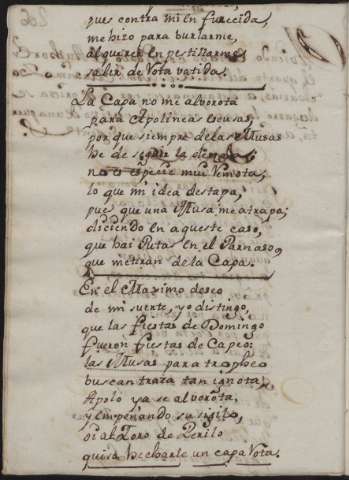 pues contra mi enfurecida,
me hizo para burlarme,
al querer en pestillarme
salir de Vota vatida.
La Capa no me alborota
para Apolineas escusas,
por que siempre de las Musas
he de seguir la
no es especie mui remota,
lo que mi idea destapa,
pues que una Musa me atrapa;
diciendo en aqueste caso,
que hai Putas en el Parnaso,
que me tiran de la Capa.
En el Maximo deseo
de mi suerte, yo distingo,
que las fiestas de Domingo
fueron fiestas de Capeo:
las Musas para tropheo
buscan traza tan ignota,
Apolo ya se alborota,
y empeñando su sigilo,
oi al Toro de Perilo
quiso hecharle un capa Vota.